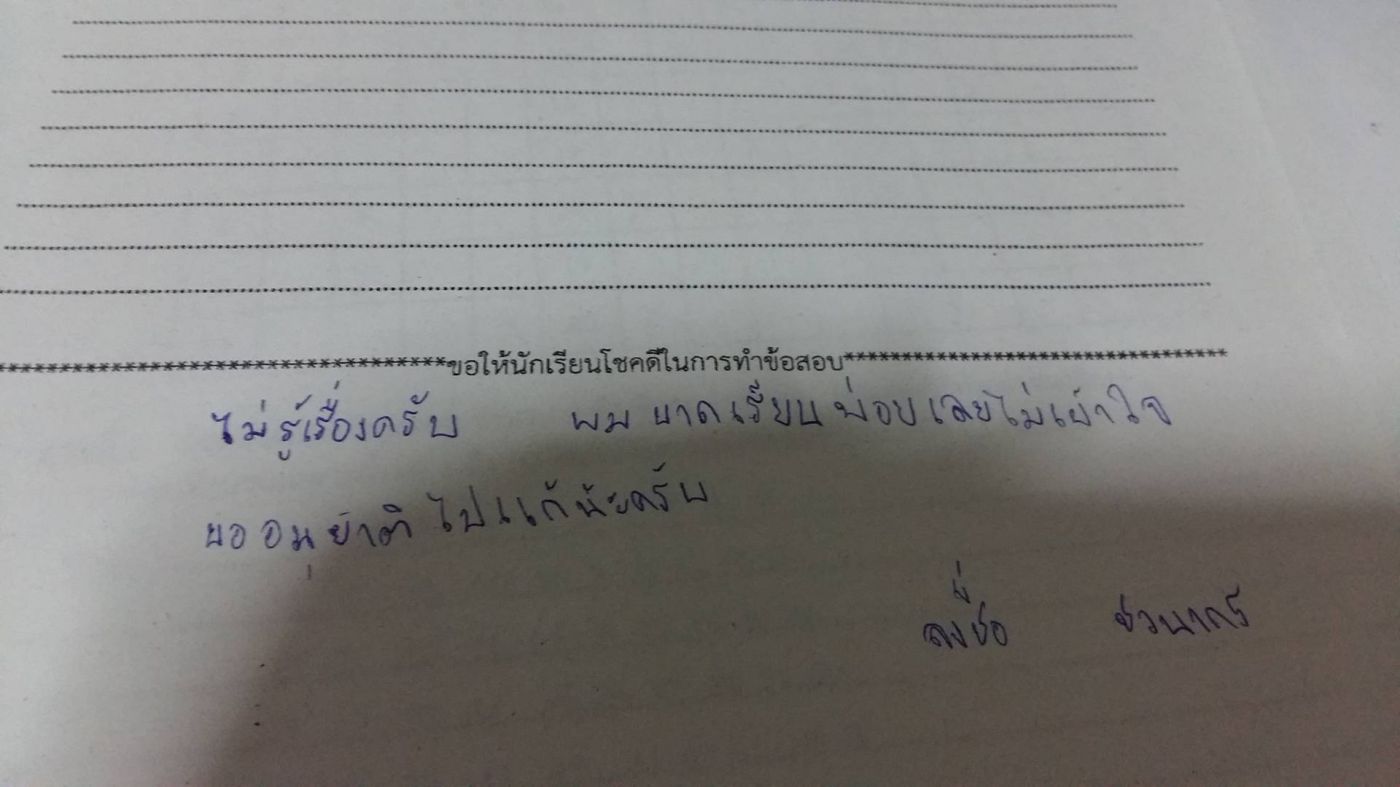 ********************************ขอให้นักเรียนโชคดีในการทำข้อสอบ********************************
ไม่รู้เรื่องครับ ผมขาดเรียนบ่อยเลยไม่เข้าใจ
ขออนุญาติไปแก้น้ะครับ
ลงชื่อ ชวนากร